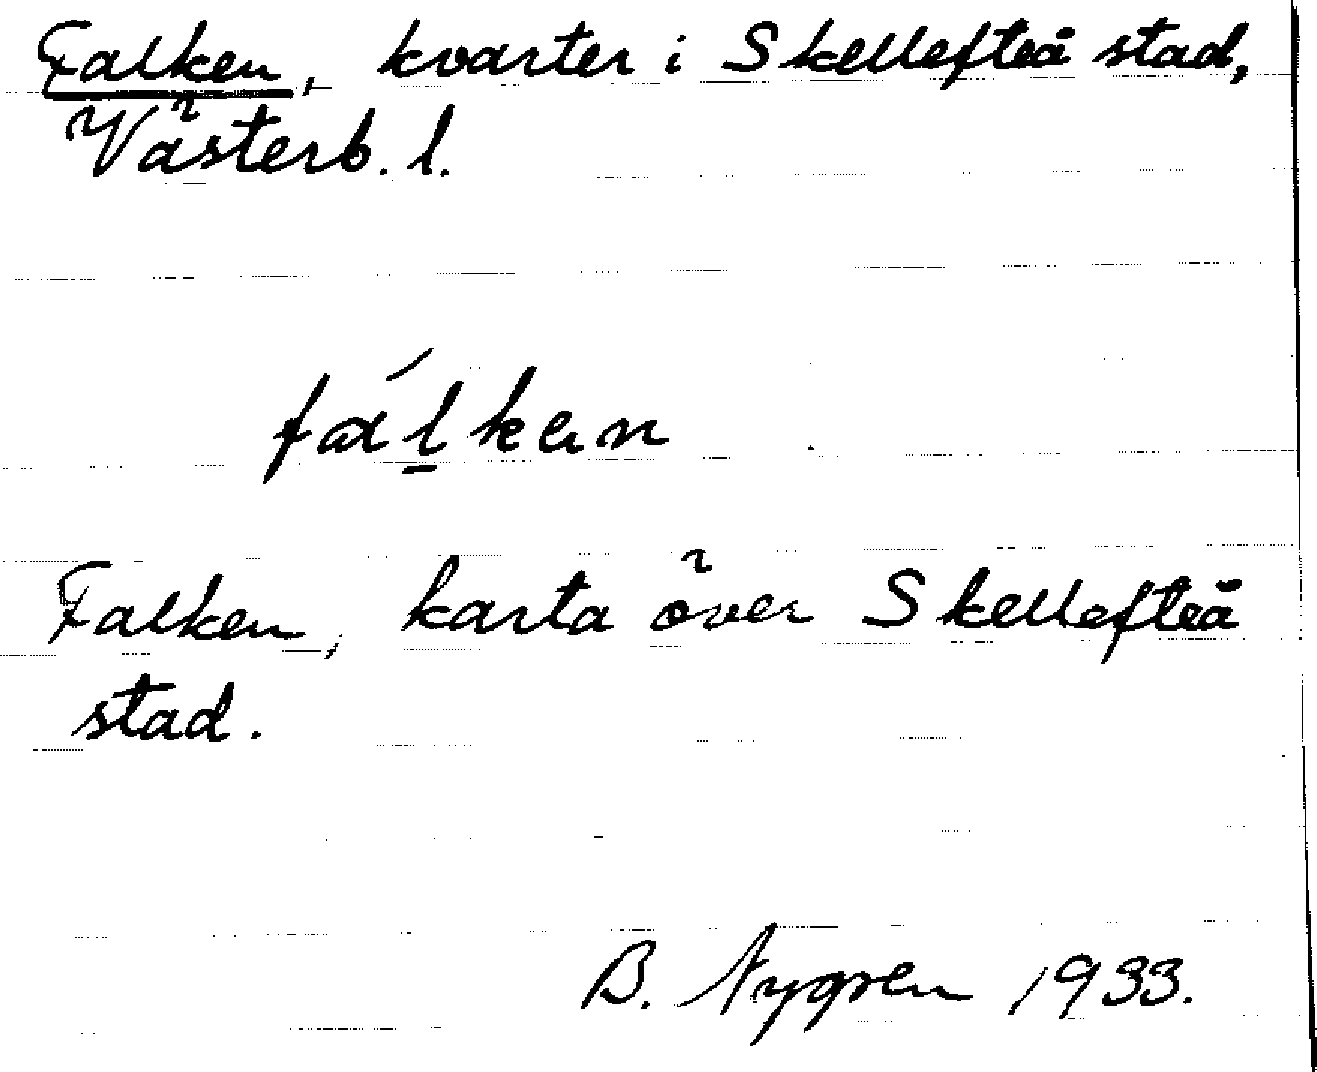 Falken, kvarter i Skellefteå stad,
Västerb. l.
fálkən
Falken, karta över Skellefteå
stad.
B. Nygren 1933.